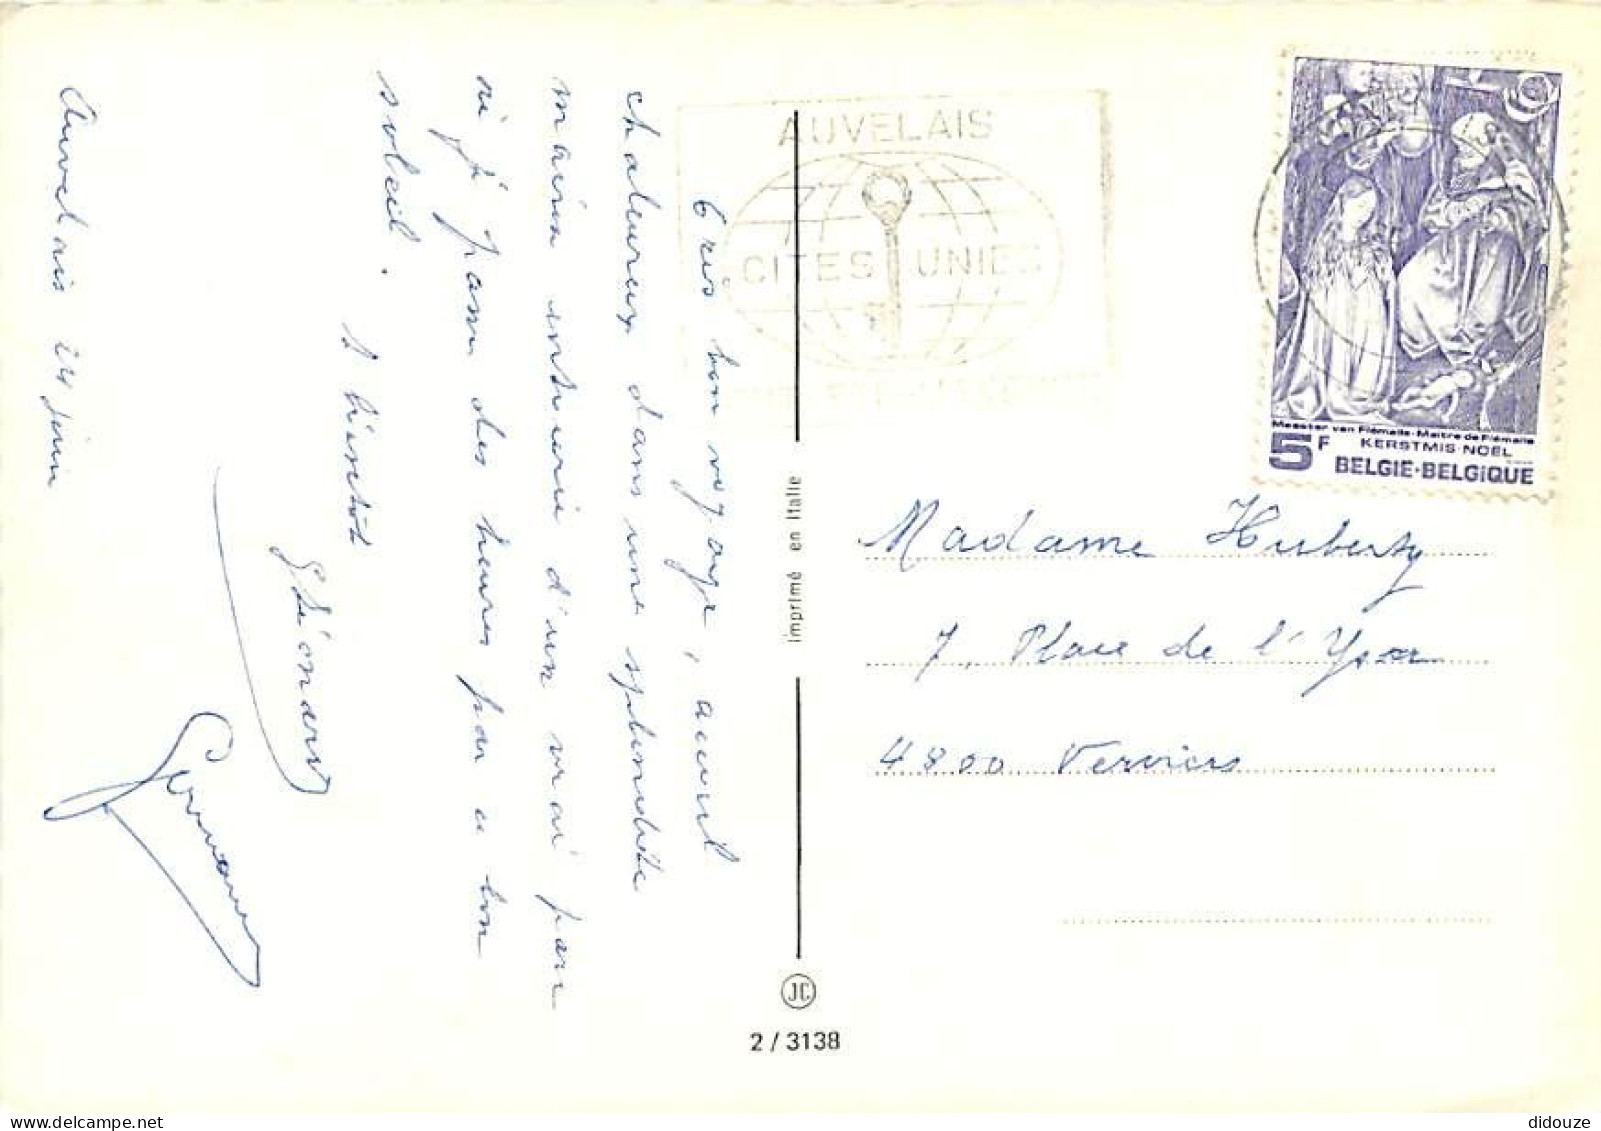 Très bon voyage, accueil
chaleureux dans une splendide
maison entourée d'un vrai parc
ni j'passe des heures par ce bon
soleil.
A bientôt
G Léonard
Auvelais 24 juin
AUVELAIS
CITES UNIES
Meester van Flémalle-Maître de Flémalle
KERSTMIS-NOËL
5F BELGIË-BELGIQUE
Madame Huberty
7, Place de l'Yser
4800 Verviers
imprimé en Italie
JC
2 / 3138
didouze